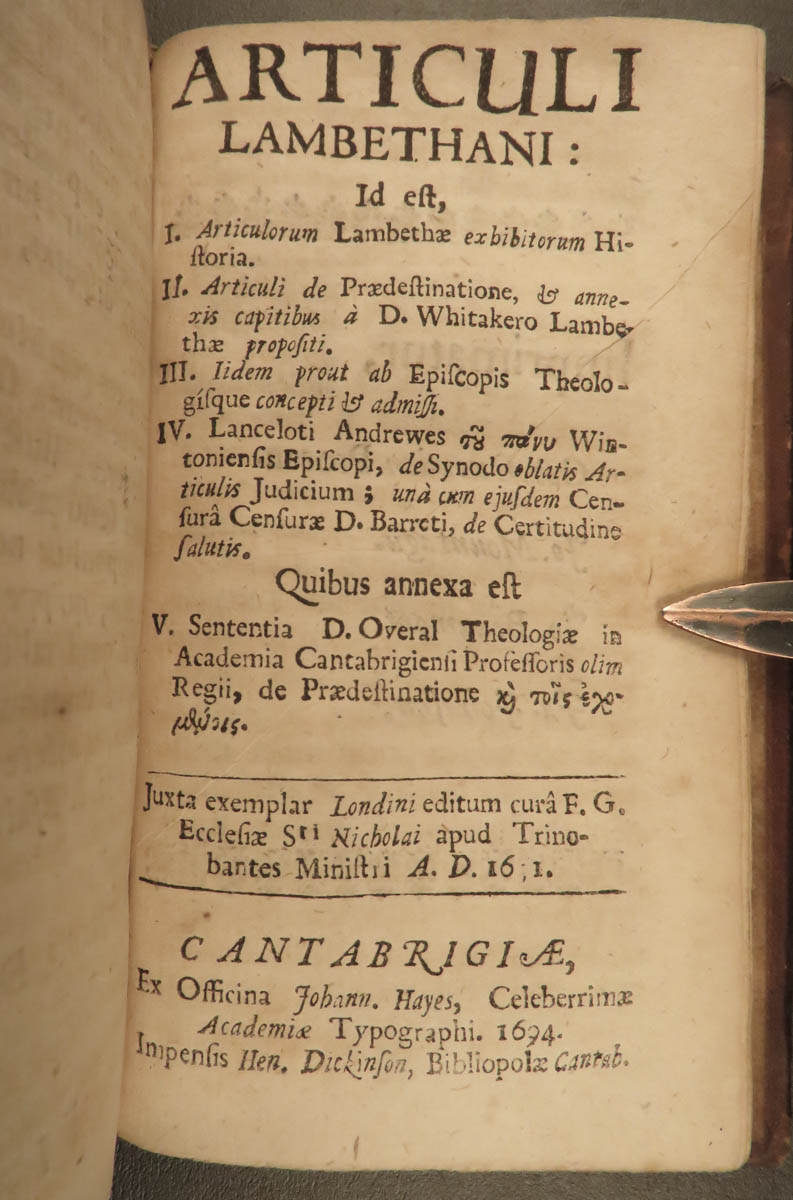 ARTICULI
LAMBETHANI:
Id eſt,
I. Articulorum Lambethæ exhibitorum Hi-
ſtoria.
II. Articuli de Prædeſtinatione, & anne-
xis capitibus à D. Whitakero Lambe-
thæ propoſiti.
III. Iidem prout ab Epiſcopis Theolo-
gíſque concepti & admiſſi.
IV. Lanceloti Andrewes τȣ͂ πάνυ Win-
tonienſis Epiſcopi, de Synodo oblatis Ar-
ticulis Judicium; unà cum ejuſdem Cen-
ſurâ Cenſuræ D. Barreti, de Certitudine
ſalutis.
Quibus annexa eſt
V. Sententia D. Overal Theologiæ in
Academia Cantabrigienſi Profeſſoris olim
Regii, de Prædeſtinatione ϗ̀ τοῖς ἐχο-
μένοις.
Juxta exemplar Londini editum curâ F. G.
Eccleſiæ Sti Nicholai apud Trino-
bantes Miniſtri A. D. 16;1.
CANTABRIGIÆ,
Ex Officina Johann. Hayes, Celeberrimæ
Academiæ Typographi. 1694.
Impenſis Hen. Dickinſon, Bibliopolæ Cantab.